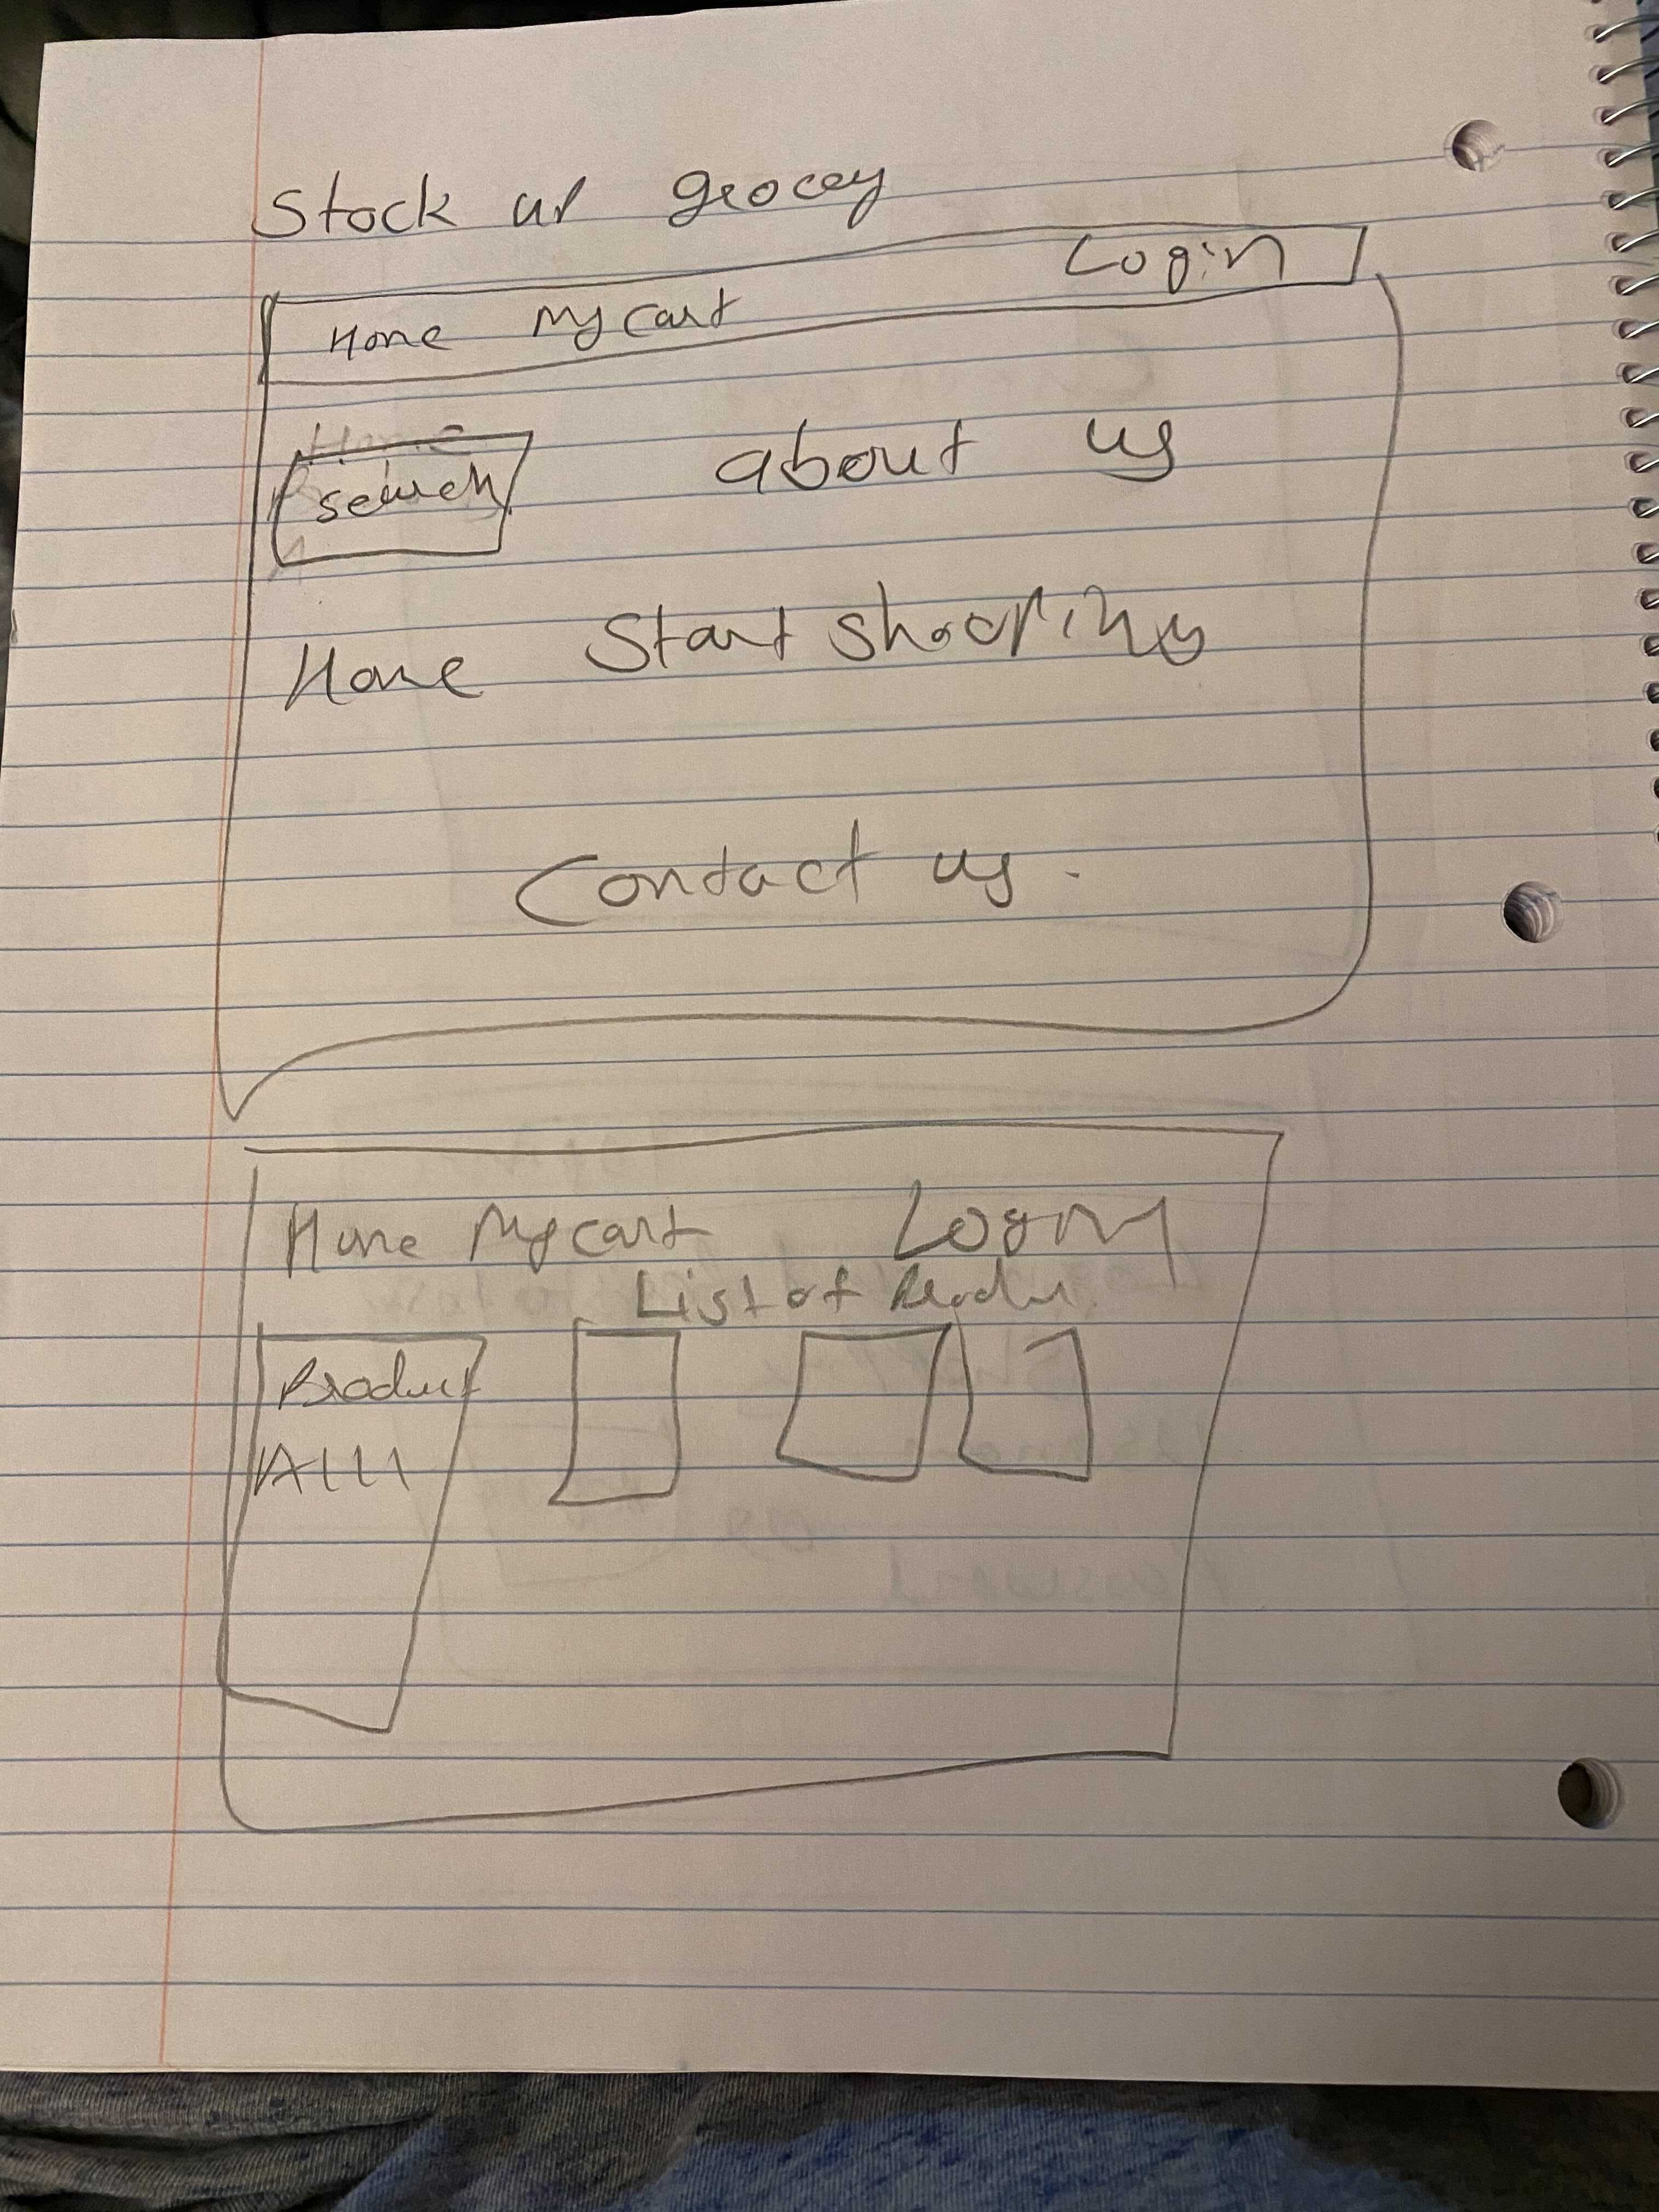 Stock up grocey
Home My Cart Login
search about us
Home Start shopping
Contact us.
Home My cart Login
List of
Product